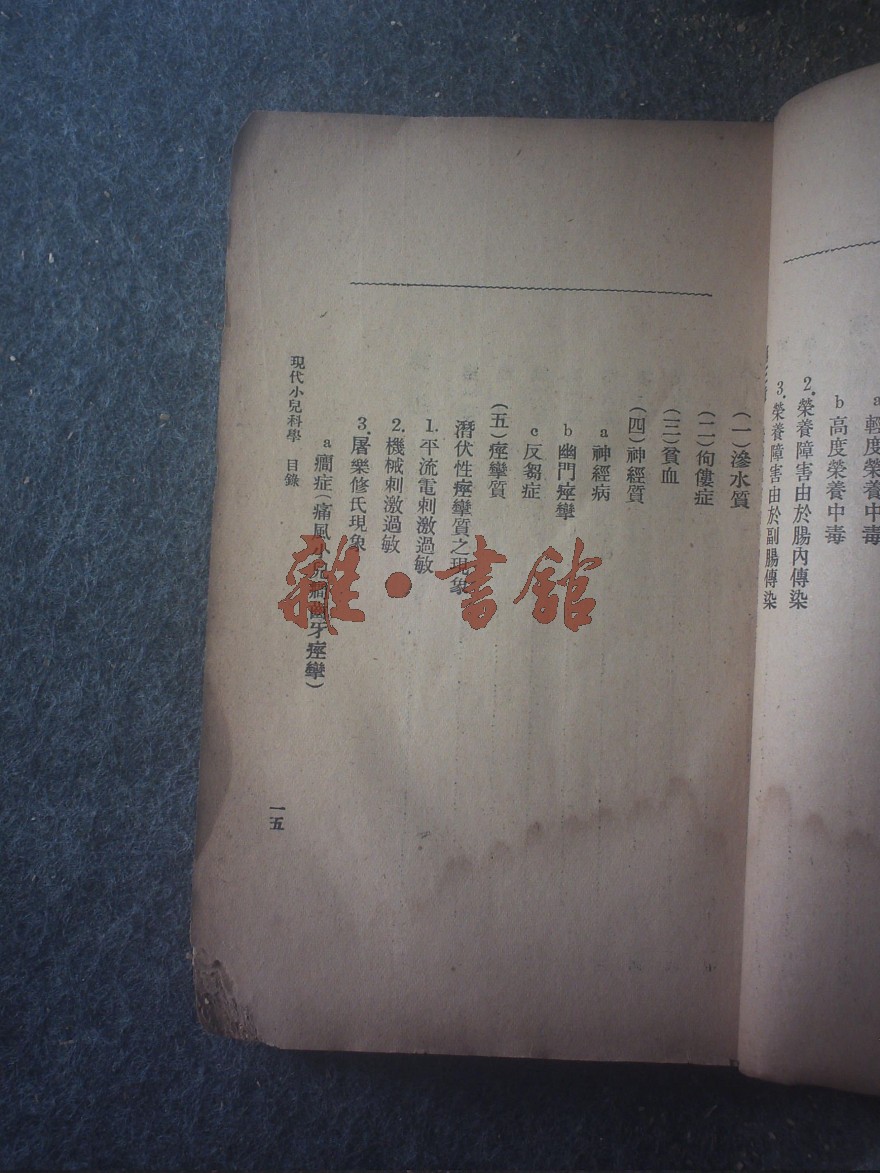 a 輕度榮養中毒
b 高度榮養中毒
2. 榮養障害由於腸內傳染
3. 榮養障害由於副腸傳染
(一)滲水質
(二)佝僂症
(三)貧血
(四)神經質
a 神經病
b 幽門痙攣
c 反芻症
(五)痙攣質
潛伏性痙攣質之現象
1. 平流電刺激過敏
2. 機械刺激過敏
3. 屠樂修氏現象
a 癎症(痛風小兒癎齒牙痙攣)
現代小兒科學 目錄
一五
雜·書館